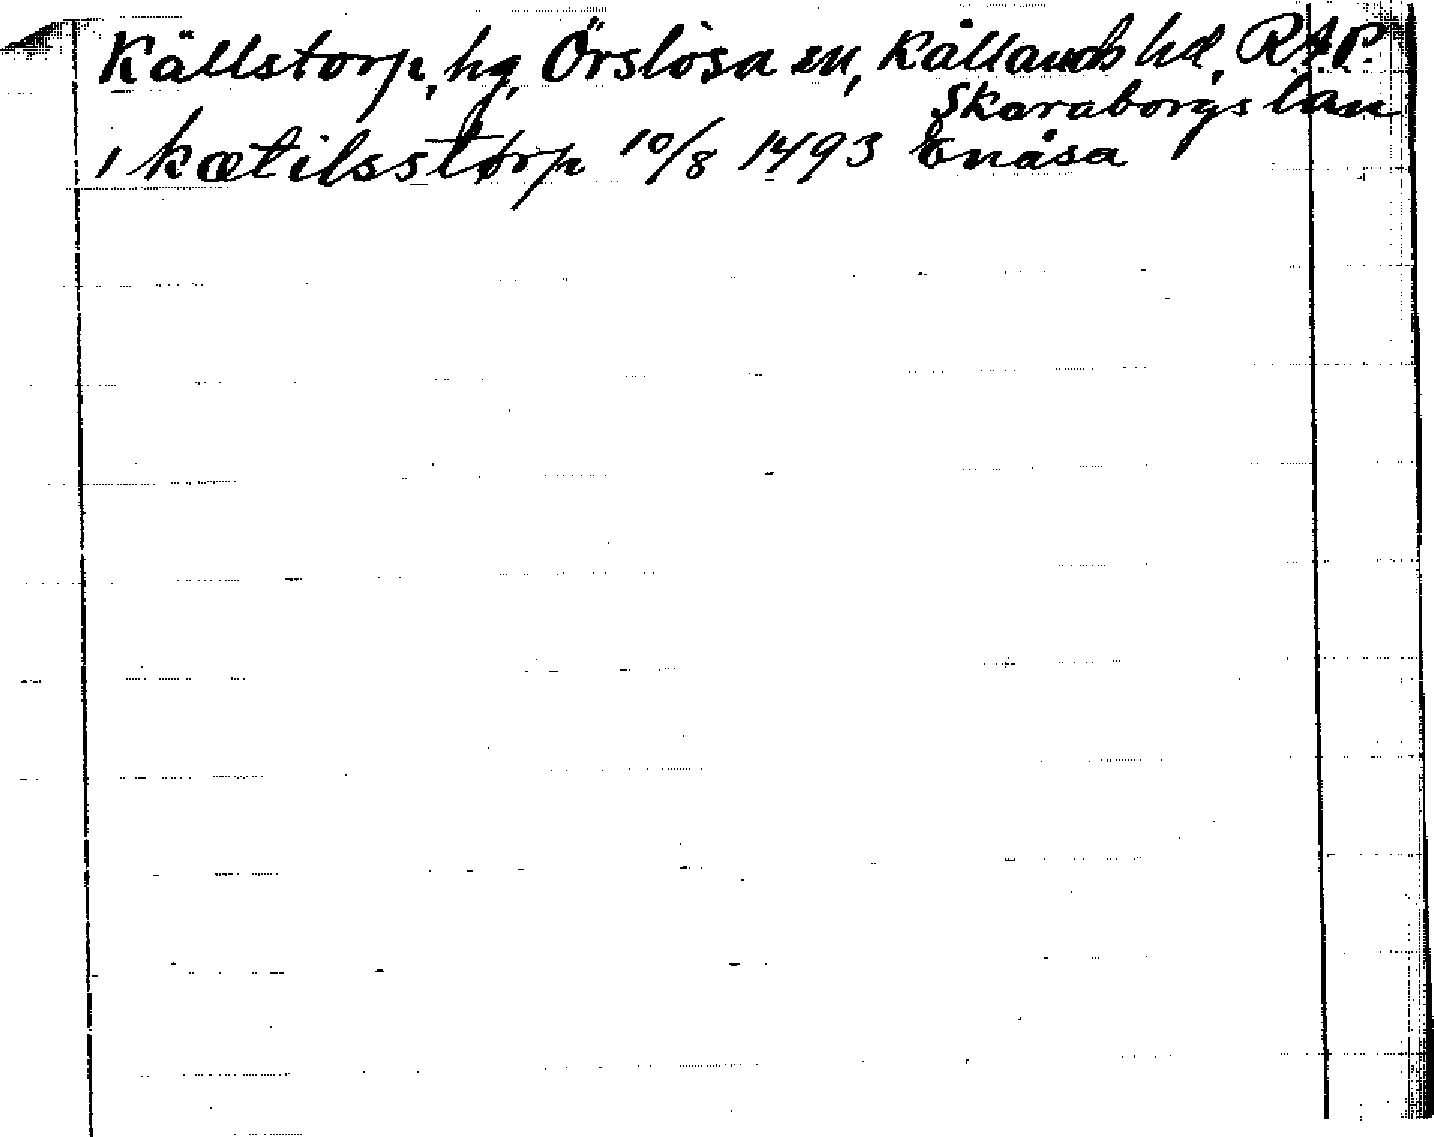 Källstorp, hg, Örslösa sn, Kållands hd, RAP.
Skaraborgs län
i kætilsstorp 10/8 1493 Enåsa